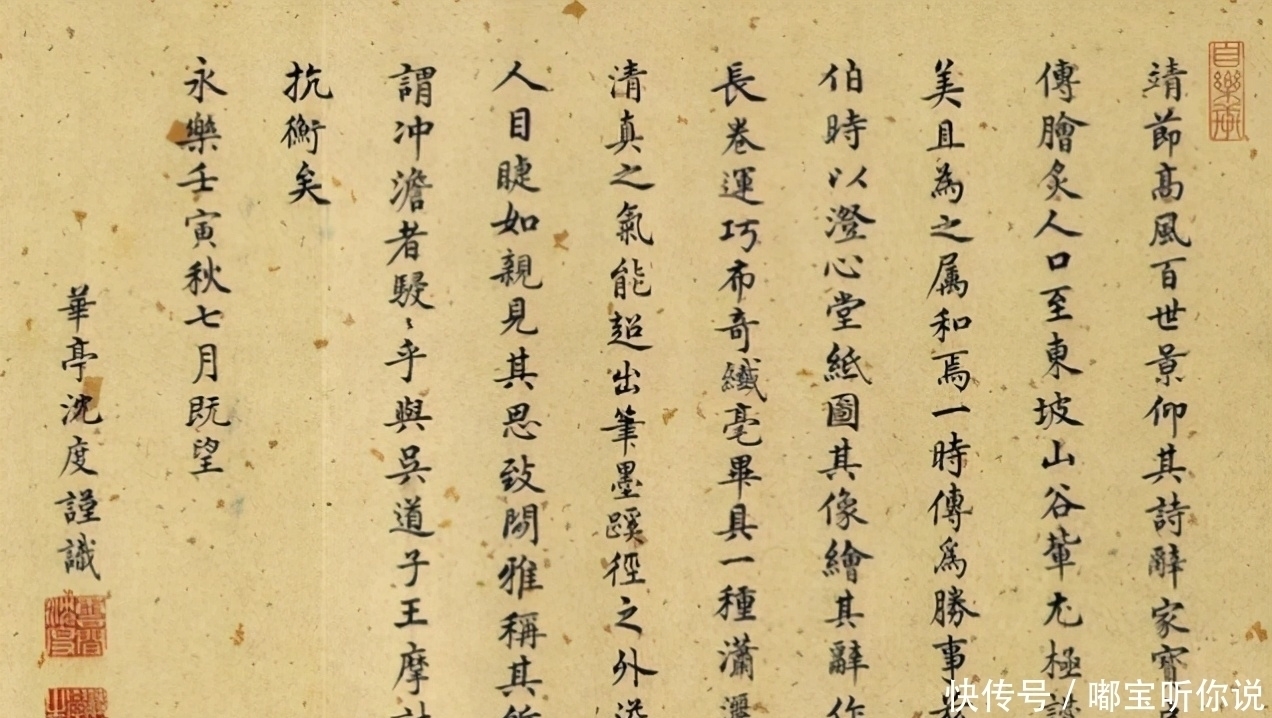 靖節高風百世景仰其詩辭家
傳膾炙人口至東坡山谷輩尤極
美且為之属和焉一時傳為勝事
伯時以澄心堂紙圖其像繪其辭作
長卷運巧布奇纖毫畢具一種瀟
清真之氣能超出筆墨蹊徑之外
人目睫如親見其思致閒雅稱其所
謂冲澹者駸〻乎與吳道子王摩
抗衡矣
永樂壬寅秋七月既望
華亭沈度謹識
快传号 / 嘟宝听你说